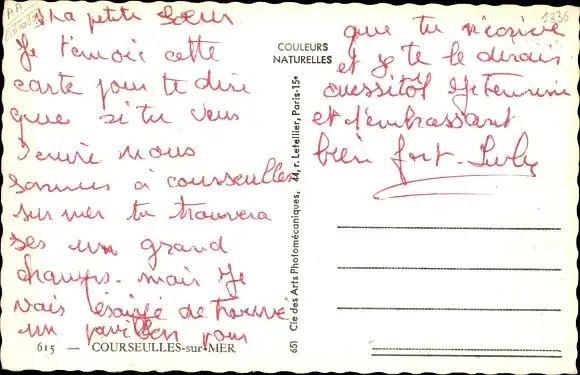 Ma petite Sœur
Je t'envoie cette
carte pour te dire
que si tu veus
venir nous
sommes à courseulles
sur mer tu trouvera
ses un grand
champs. mais je
vais esaiyé de trouvé
un pavillon pour
615 — COURSEULLES-sur-MER
COULEURS
NATURELLES
651 Cie des Arts Photomécaniques, 44, r. Letellier, Paris-15e
1336
que tu
et je te le dirais
aussitot je termine
et t'embrassant
bien fort.